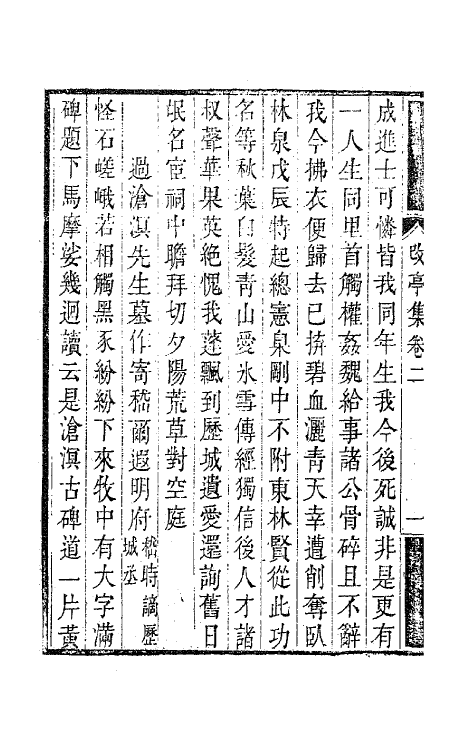 改亭集卷二
一
成進士可憐皆我同年生我今後死誠非是更有
一人生同里首觸權姦魏給事諸公骨碎且不辭
我今拂衣便歸去已拚碧血灑青天幸遭削奪臥
林泉戊辰特起總憲臬剛中不附東林賢從此功
名等秋葉白髮靑山愛氷雪傳經獨信後人才諸
叔聲華果英絶愧我蓬飄到歷城遺愛還詢舊日
氓名宦祠中瞻拜切夕陽荒草對空庭
過滄溟先生墓作寄嵇爾遐明府嵇時謫歷城丞
怪石嵯峨若相觸黑豕紛紛下來牧中有大字滿
碑題下馬摩娑幾迴讀云是滄溟古碑道一片黃